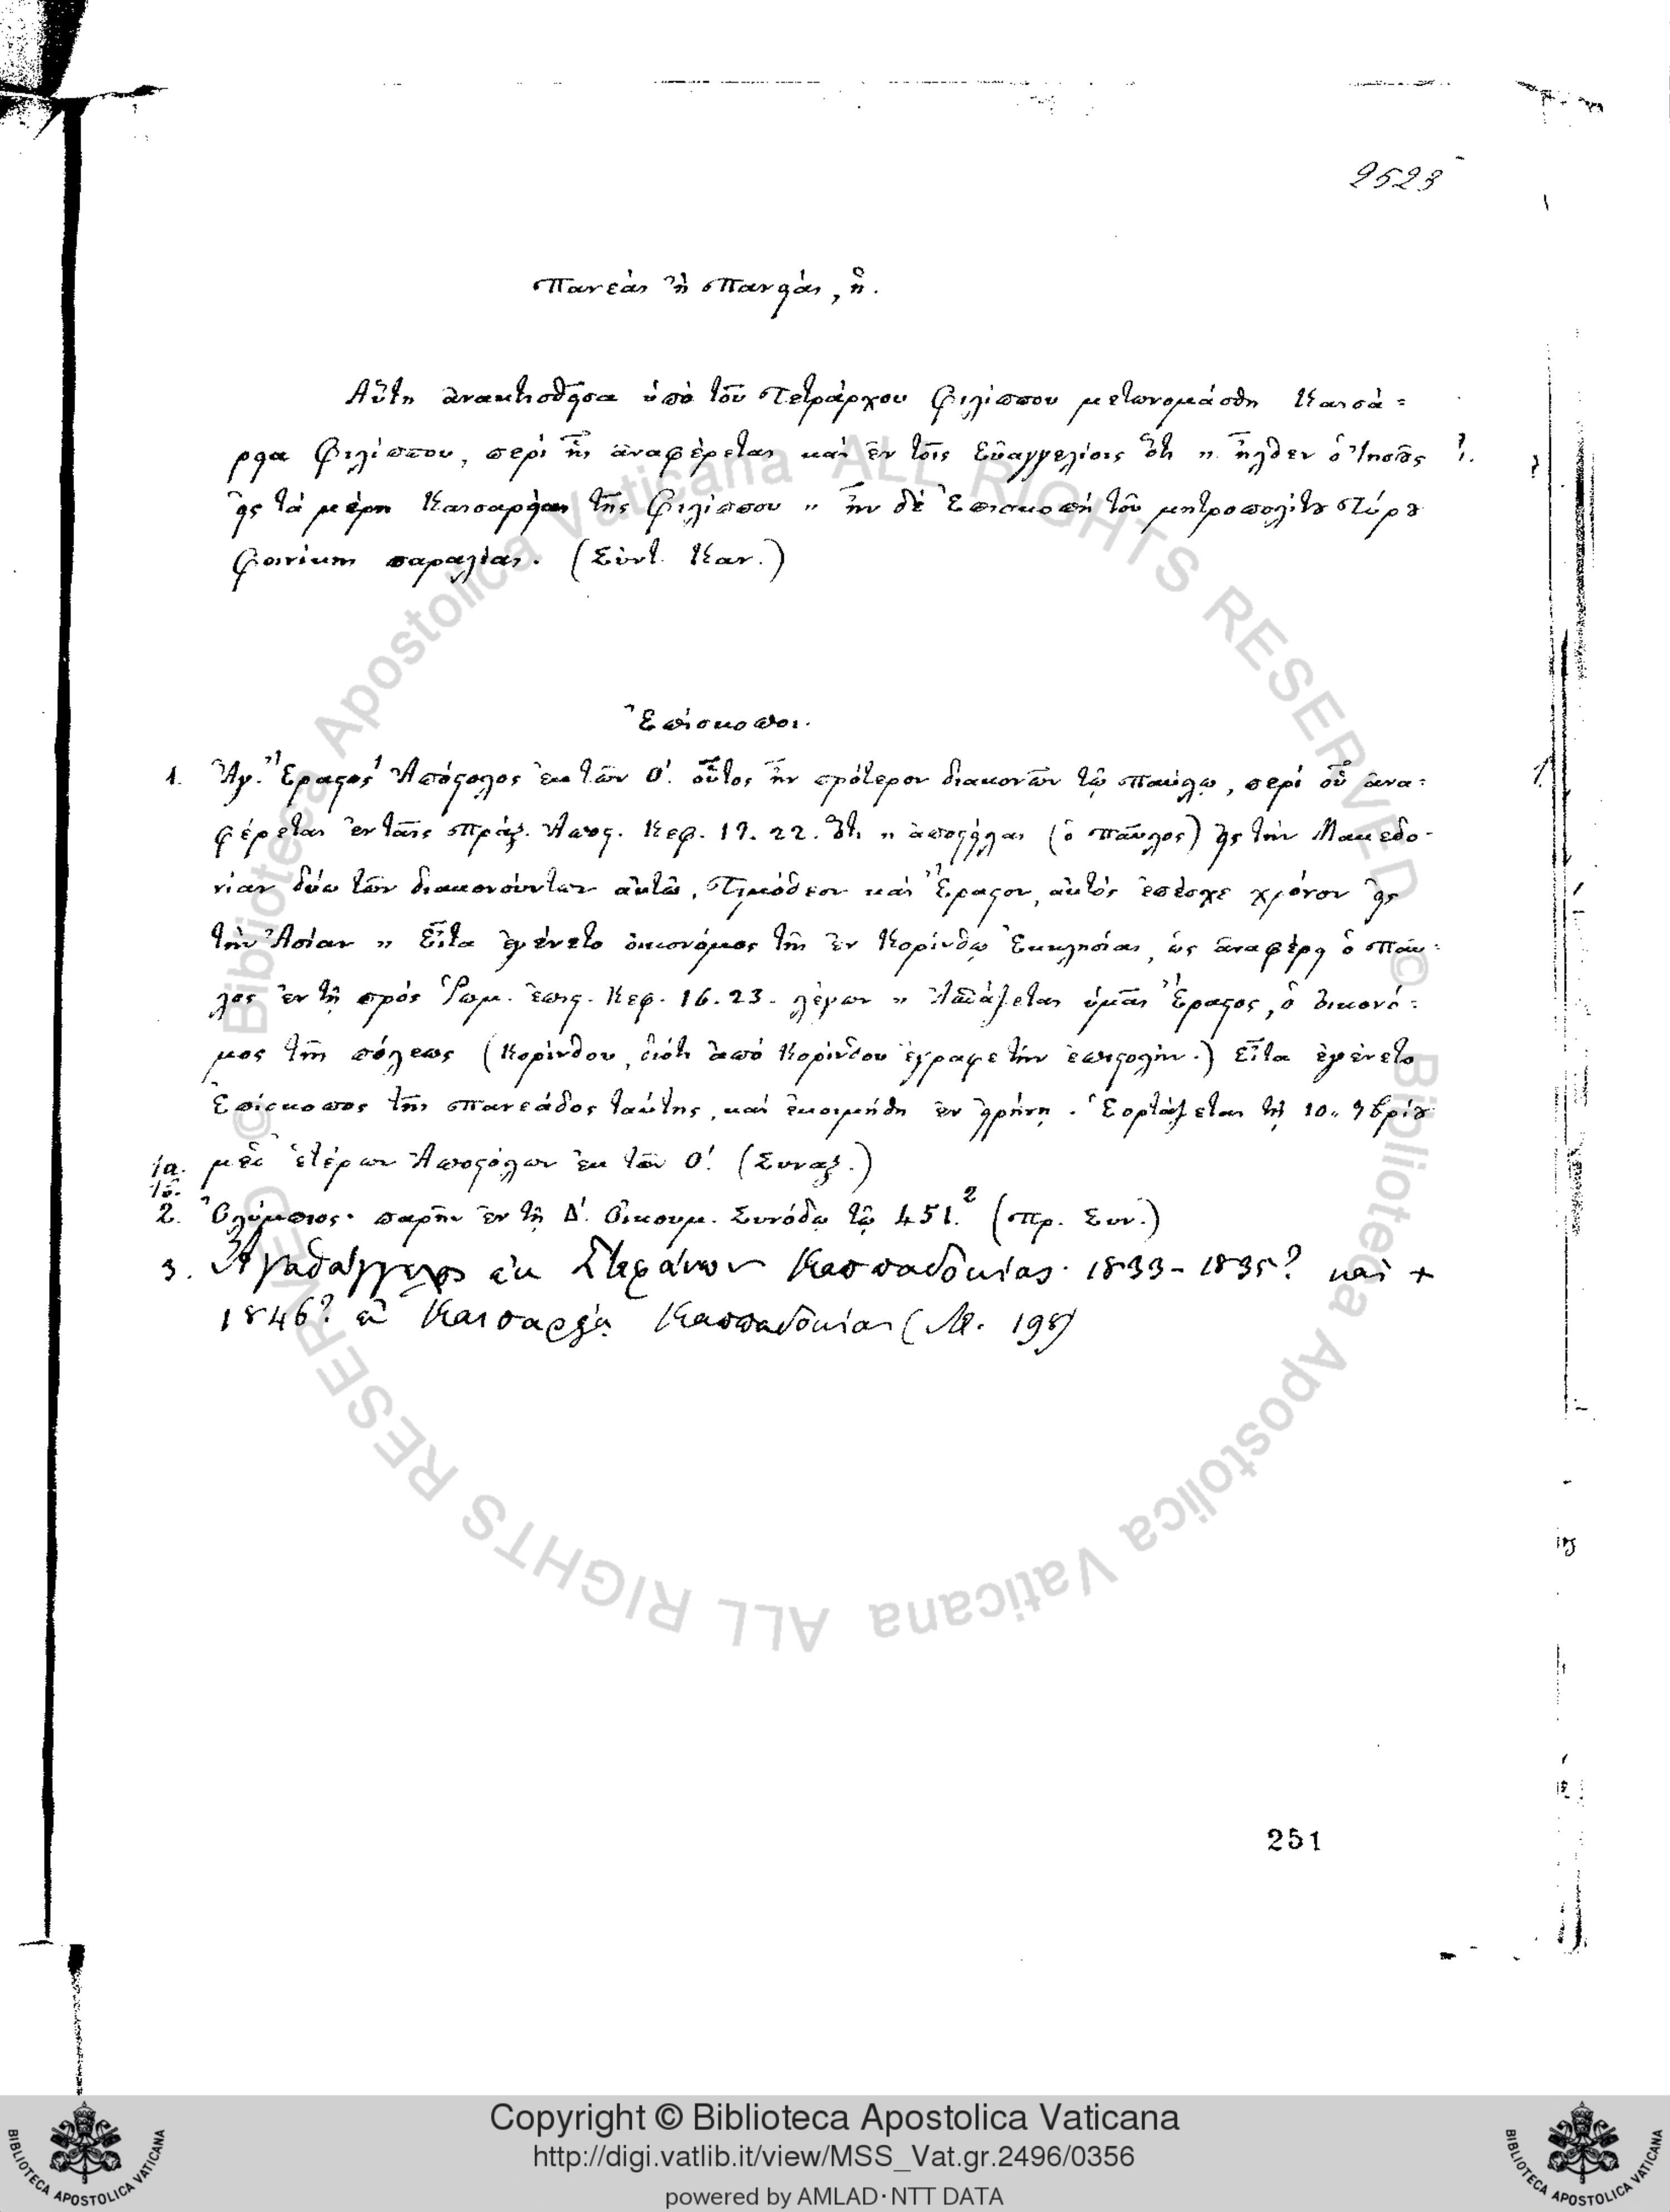 2523
Πανεὰς ἢ Πανειὰς, ἡ.
Αὕτη ἀνακτισθεῖσα ὑπὸ τοῦ Τετράρχου Φιλίππου μετωνομάσθη Καισά=
ρεια Φιλίππου, περὶ ἧς ἀναφέρεται καὶ ἐν τοῖς Εὐαγγελίοις ὅτι „ ἦλθεν ὁ Ἰησοῦς
εἰς τὰ μέρη Καισαρείας τῆς Φιλίππου „ ἦν δὲ Ἐπισκοπὴ τοῦ μητροπολίτου Τύρου
Φοινίκης παραλίας. (Σύντ. Καν.)
Ἐπίσκοποι.
1. Ἅγ. Ἔραστος Ἀπόστολος ἐκ τῶν Ο΄. οὗτος ἦν πρότερον διακονῶν τῷ Παύλῳ, περὶ οὗ ἀνα=
φέρεται ἐν ταῖς Πράξ. Ἀποστ. Κεφ. 19. 22. ὅτι „ ἀποστείλας (ὁ Παῦλος) εἰς τὴν Μακεδο-
νίαν δύω τῶν διακονούντων αὐτῷ, Τιμόθεον καὶ Ἔραστον, αὐτὸς ἐπέσχε χρόνον εἰς
τὴν Ἀσίαν „ Εἶτα ἐγένετο οἰκονόμος τῆς ἐν Κορίνθῳ Ἐκκλησίας, ὡς ἀναφέρει ὁ Παῦ=
λος ἐν τῇ πρὸς Ῥωμ. ἐπιστ. Κεφ. 16. 23. λέγων „ Ἀσπάζεται ὑμᾶς Ἔραστος, ὁ οἰκονό=
μος τῆς πόλεως (Κορίνθου, διότι ἀπὸ Κορίνθου ἔγραφε τὴν ἐπιστολήν.) Εἶτα ἐγένετο
Ἐπίσκοπος τῆς Πανεάδος ταύτης, καὶ ἐκοιμήθη ἐν εἰρήνῃ. Ἑορτάζεται τῇ 10. 9βρίου
1α. μεθ' ἑτέρων Ἀποστόλων ἐκ τῶν Ο΄. (Συναξ.)
1β.
2. Ὀλύμπιος· παρῆν ἐν τῇ Δ΄. Οἰκουμ. Συνόδῳ τῷ 451.² (Πρ. Συν.)
3. Ἀγαθάγγελος ἐκ Καππαδοκίας· 1833-1835? καὶ +
1846? ἐν Καισαρείᾳ Καππαδοκίας (Μ. 198)
251
© Biblioteca Apostolica Vaticana ALL RIGHTS RESERVED
© Biblioteca Apostolica Vaticana ALL RIGHTS RESERVED
Copyright © Biblioteca Apostolica Vaticana
http://digi.vatlib.it/view/MSS_Vat.gr.2496/0356
powered by AMLAD·NTT DATA
BIBLIOTECA APOSTOLICA VATICANA
BIBLIOTECA APOSTOLICA VATICANA